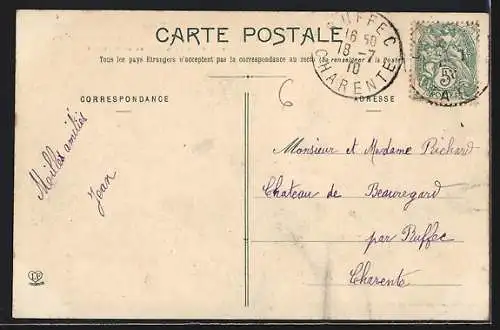 CARTE POSTALE
Tous les pays étrangers n'acceptent pas la correspondance au recto (Se renseigner à la Poste)
RUFFEC
16 50
18 - 7
10
CHARENTE
5
CORRESPONDANCE
ADRESSE
6
Meilles amitiés
Jean
Monsieur et Madame Richard
Chateau de Beauregard
par Ruffec
Charente